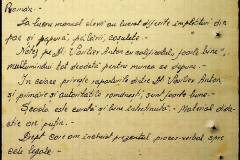 Române.-
La lucru manual elevii au lucrat diferite împletituri din
pae și papură, pălării, cosulete.-
Notez pe Dl. Vasilev Anton cu calificativul „foarte bine",
mulțumindu-i tot deodată pentru munca ce depune.-
În ceiace privește raporturile dintre Dl. Vasilev Anton
și primarie și autoritățile românești, sunt foarte bune.-
Școala este curată și bine întreținută.- Material didac-
tic are puțin.-
Drept care am încheiat prezentul proces-verbal spre
cele legale.-